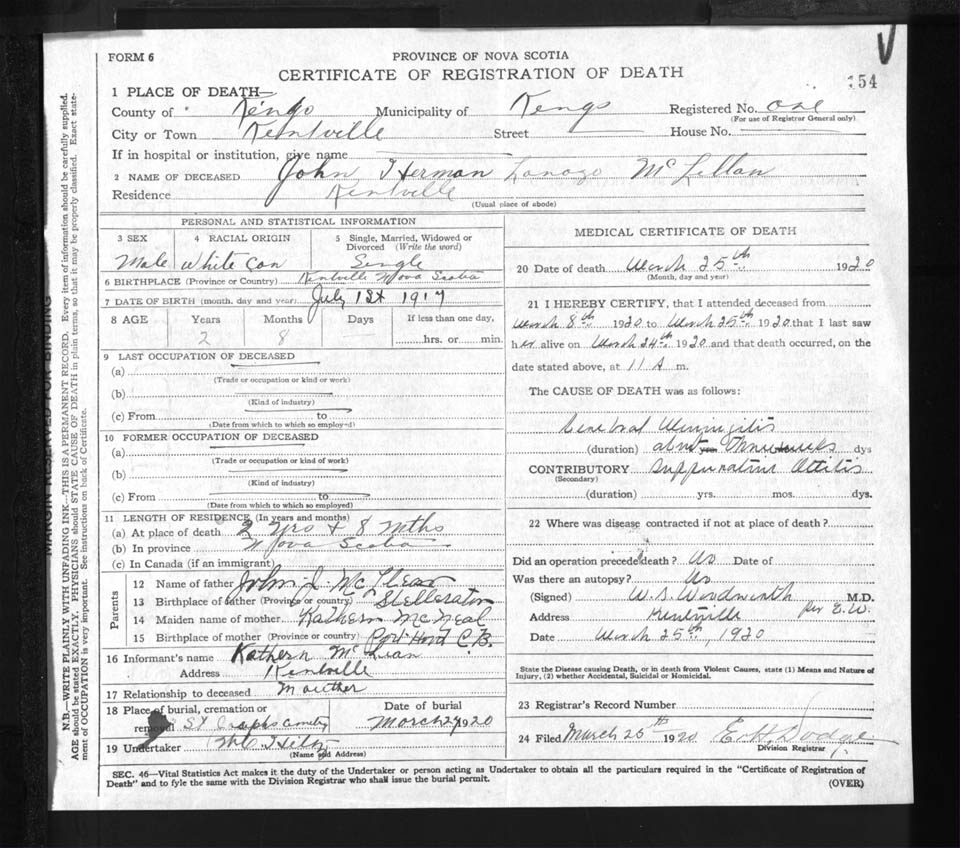 FORM 6
PROVINCE OF NOVA SCOTIA
CERTIFICATE OF REGISTRATION OF DEATH
154
1 PLACE OF DEATH—
County of Kings Municipality of Kings Registered No. one
(For use of Registrar General only)
City or Town Kentville Street House No.
If in hospital or institution, give name
2 NAME OF DECEASED John Herman McLellan
Residence Kentville
(Usual place of abode)
PERSONAL AND STATISTICAL INFORMATION
3 SEX 4 RACIAL ORIGIN 5 Single, Married, Widowed or Divorced (Write the word)
Male White Can Single
6 BIRTHPLACE (Province or Country) Kentville Nova Scotia
7 DATE OF BIRTH (month, day and year) July 1st 1917
8 AGE Years Months Days If less than one day,
2 8 hrs. or min.
9 LAST OCCUPATION OF DECEASED
(a)
(Trade or occupation or kind or work)
(b)
(Kind of industry)
(c) From to
(Date from which to which so employed)
10 FORMER OCCUPATION OF DECEASED
(a)
(Trade or occupation or kind or work)
(b)
(Kind of industry)
(c) From to
(Date from which to which so employed)
11 LENGTH OF RESIDENCE (In years and months)
(a) At place of death 2 yrs & 8 mths
(b) In province Nova Scotia
(c) In Canada (if an immigrant)
Parents
12 Name of father John J McLean
13 Birthplace of father (Province or country) Stelleraton
14 Maiden name of mother Kathern McNeal
15 Birthplace of mother (Province or country) Port Hood C.B.
16 Informant's name Kathern McLean
Address Kentville
17 Relationship to deceased Mouther
18 Place of burial, cremation or removal St Josephs Cemetry
Date of burial March 27 1920
19 Undertaker Hiltz
(Name and Address)
MEDICAL CERTIFICATE OF DEATH
20 Date of death March 25th 1920
(Month, day and year)
21 I HEREBY CERTIFY, that I attended deceased from
March 8th 1920 to March 25th 1920 that I last saw
h er alive on March 24th 1920 and that death occurred, on the
date stated above, at 11 A m.
The CAUSE OF DEATH was as follows:
Cerebral Meningitis
(duration) about yrs. Three weeks dys
CONTRIBUTORY Suppurative Ottitis
(Secondary)
(duration) yrs. mos. dys.
22 Where was disease contracted if not at place of death?
Did an operation precede death? No Date of
Was there an autopsy? No
(Signed) W. S. Woodworth M.D.
per E.W.
Address Kentville
Date March 25th, 1920
State the Disease causing Death, or in death from Violent Causes, state (1) Means and Nature of
Injury, (2) whether Accidental, Suicidal or Homicidal.
23 Registrar's Record Number
24 Filed March 25th 1920 E. H. Dodge
Division Registrar
SEC. 46—Vital Statistics Act makes it the duty of the Undertaker or person acting as Undertaker to obtain all the particulars required in the "Certificate of Registration of
Death" and to fyle the same with the Division Registrar who shall issue the burial permit.
(OVER)
MARGIN RESERVED FOR BINDING
N.B.—WRITE PLAINLY WITH UNFADING INK—THIS IS A PERMANENT RECORD. Every item of information should be carefully supplied.
AGE should be stated EXACTLY. PHYSICIANS should STATE CAUSE OF DEATH in plain terms, so that it may be properly classified. Exact state-
ment of OCCUPATION is very important. See instructions on back of Certificate.